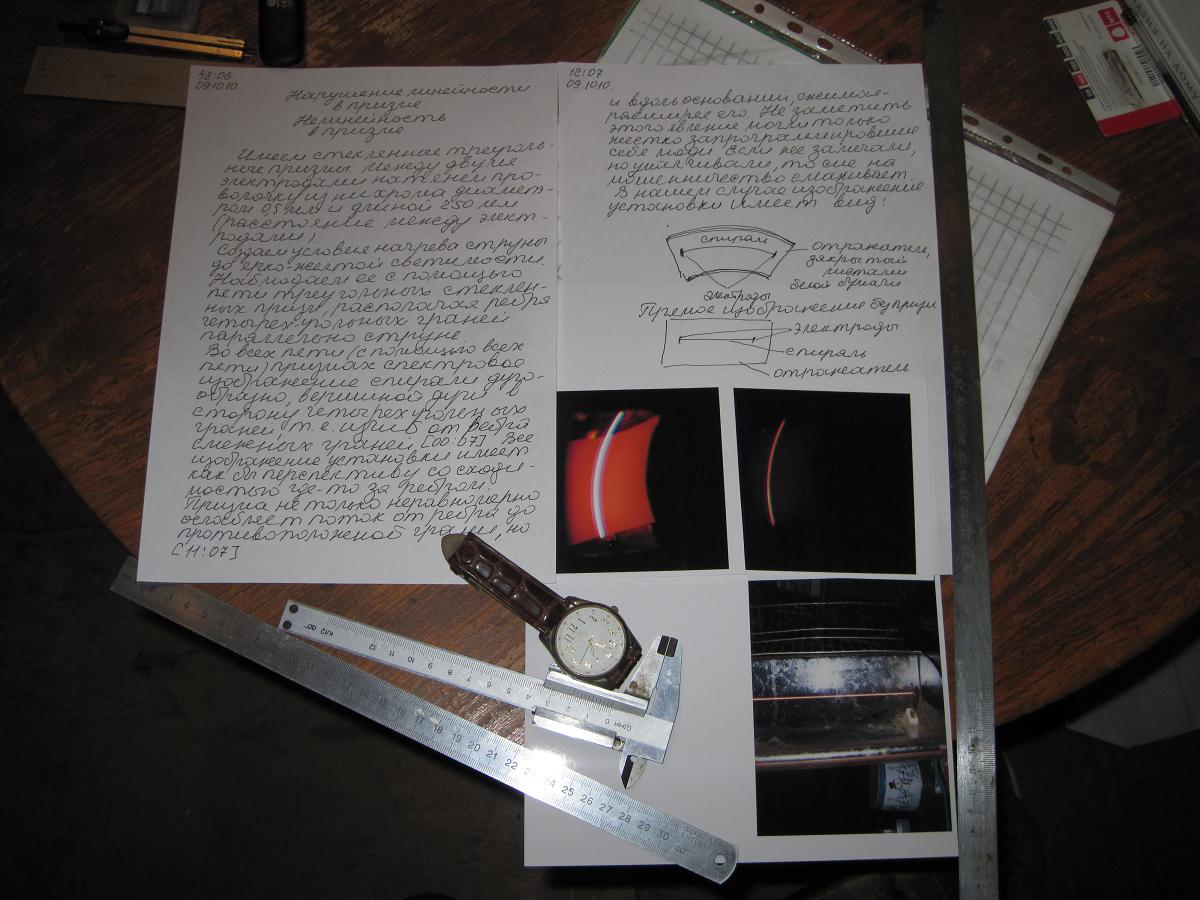 48:06
09.10.10
Нарушение линейности
в призме
Нелинейность
в призме
Имеем стеклянные треуголь-
ные призмы. Между двумя
электродами натянем про-
волочку из нихрома диамет-
ром 0,5 мм и длиной 250 мм
(расстояние между элект-
родами).
Создаем условия нагрева струны
до ярко-желтой светимости.
Наблюдаем ее с помощью
пяти треугольных стеклян-
ных призм, располагая ребра
четырехугольных граней
параллельно струне.
Во всех пяти (с помощью всех
пяти) призмах спектровое
изображение спирали дуго-
образно, вершиной дуги в
сторону четырехугольных
граней, т.е. изгиб от ребра
смежных граней [00:07]. Все
изображение установки имеет
как бы перспективу со сходи-
мостью где-то за ребром.
Призма не только неравномерно
ослабляет поток от ребра до
противоположной грани, но
[11:07]
12:07
09.10.10.
и вдоль оснований, сжимая-
расширяя его. Не заметить
этого явление могли только
жестко запрограммировавшие
себя люди. Если же замечали,
но умалчивали, то сие на
мошенничество смахивает.
В нашем случае изображение
установки имеет вид:
спираль
отражатель,
закрытый
листами
белой бумаги
электроды
Прямое изображение без призм
электроды
спираль
отражатель